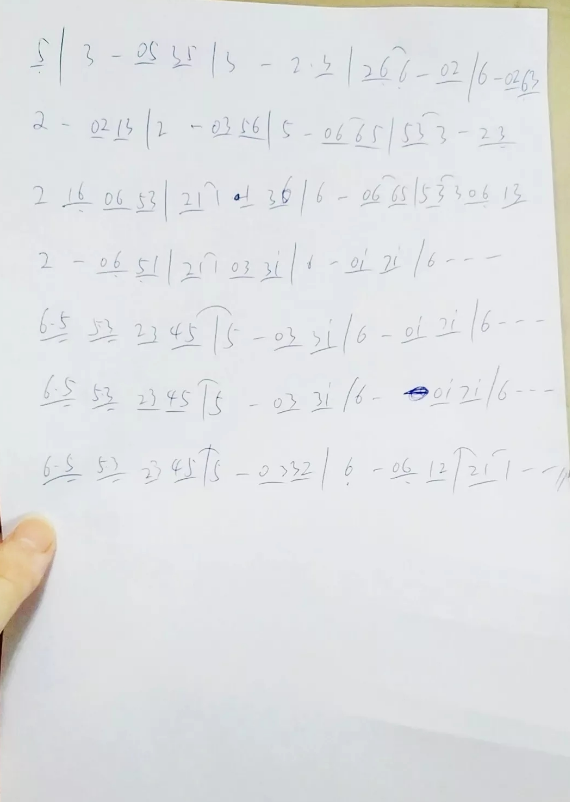 5̣ | 3 - 05 35 | 3 - 2·3 | 266 - 02 | 6 - 0263
2 - 02 13 | 2 - 03 56 | 5 - 06 65 | 533 - 23
2 16 06 53 | 211 01 36 | 6 - 06 65 | 533 06 13
2 - 06 51 | 211 03 3i | 6 - 0i 7i | 6 - - -
6·5 53 23 45 | 5 - 03 3i | 6 - 0i 7i | 6 - - -
6·5 53 23 45 | 5 - 03 3i | 6 - 0i 7i | 6 - - -
6·5 53 23 45 | 5 - 03 32 | 6̣ - 06 12 | 211 - - ||